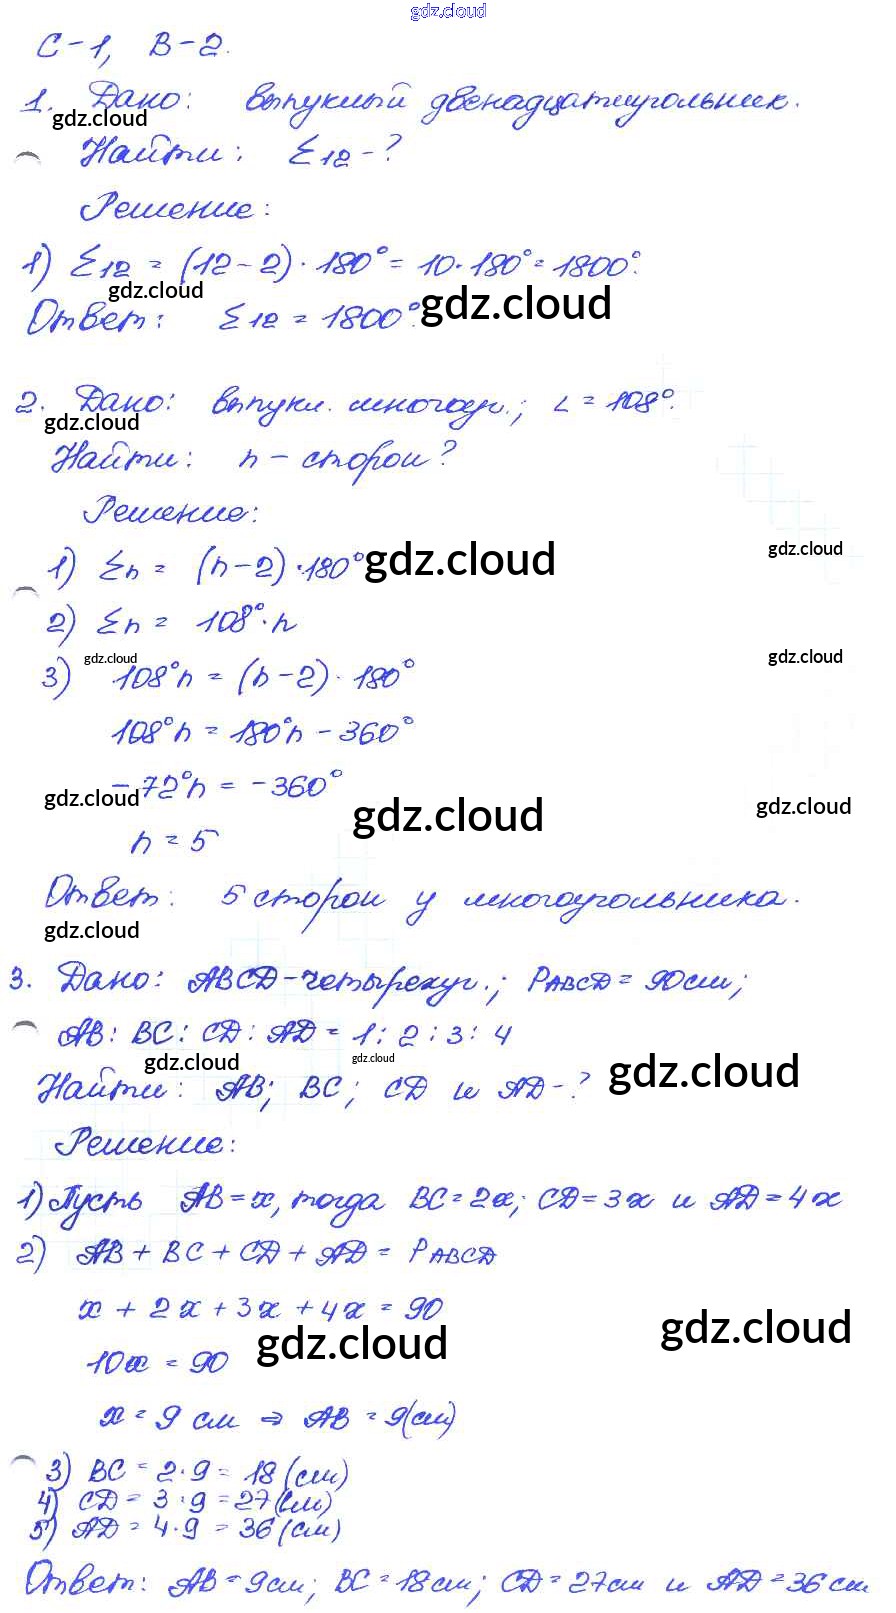 gdz.cloud
С-1, В-2.
1. Дано: выпуклый двенадцатиугольник.
gdz.cloud
Найти: Σ12 - ?
Решение:
1) Σ12 = (12-2)·180° = 10·180° = 1800°.
gdz.cloud gdz.cloud
Ответ: Σ12 = 1800°.
2. Дано: выпукл. многоуг.; ∠ = 108°.
gdz.cloud
Найти: n - сторон?
Решение:
gdz.cloud
1) Σn = (n-2)·180° gdz.cloud
2) Σn = 108°·n
gdz.cloud gdz.cloud
3) 108°n = (n-2)·180°
108°n = 180°n - 360°
-72°n = -360°
gdz.cloud gdz.cloud gdz.cloud
n = 5
Ответ: 5 сторон у многоугольника.
gdz.cloud
3. Дано: ABCD-четырехуг.; PABCD = 90см;
AB : BC : CD : AD = 1 : 2 : 3 : 4
gdz.cloud gdz.cloud gdz.cloud
Найти: AB; BC; CD и AD-?
Решение:
1) Пусть AB = x, тогда BC = 2x; CD = 3x и AD = 4x
2) AB + BC + CD + AD = PABCD
x + 2x + 3x + 4x = 90
gdz.cloud gdz.cloud
10x = 90
x = 9 см ⇒ AB = 9(см)
3) BC = 2·9 = 18 (см)
4) CD = 3·9 = 27(см)
5) AD = 4·9 = 36 (см)
Ответ: AB = 9см; BC = 18см; CD = 27см и AD = 36см